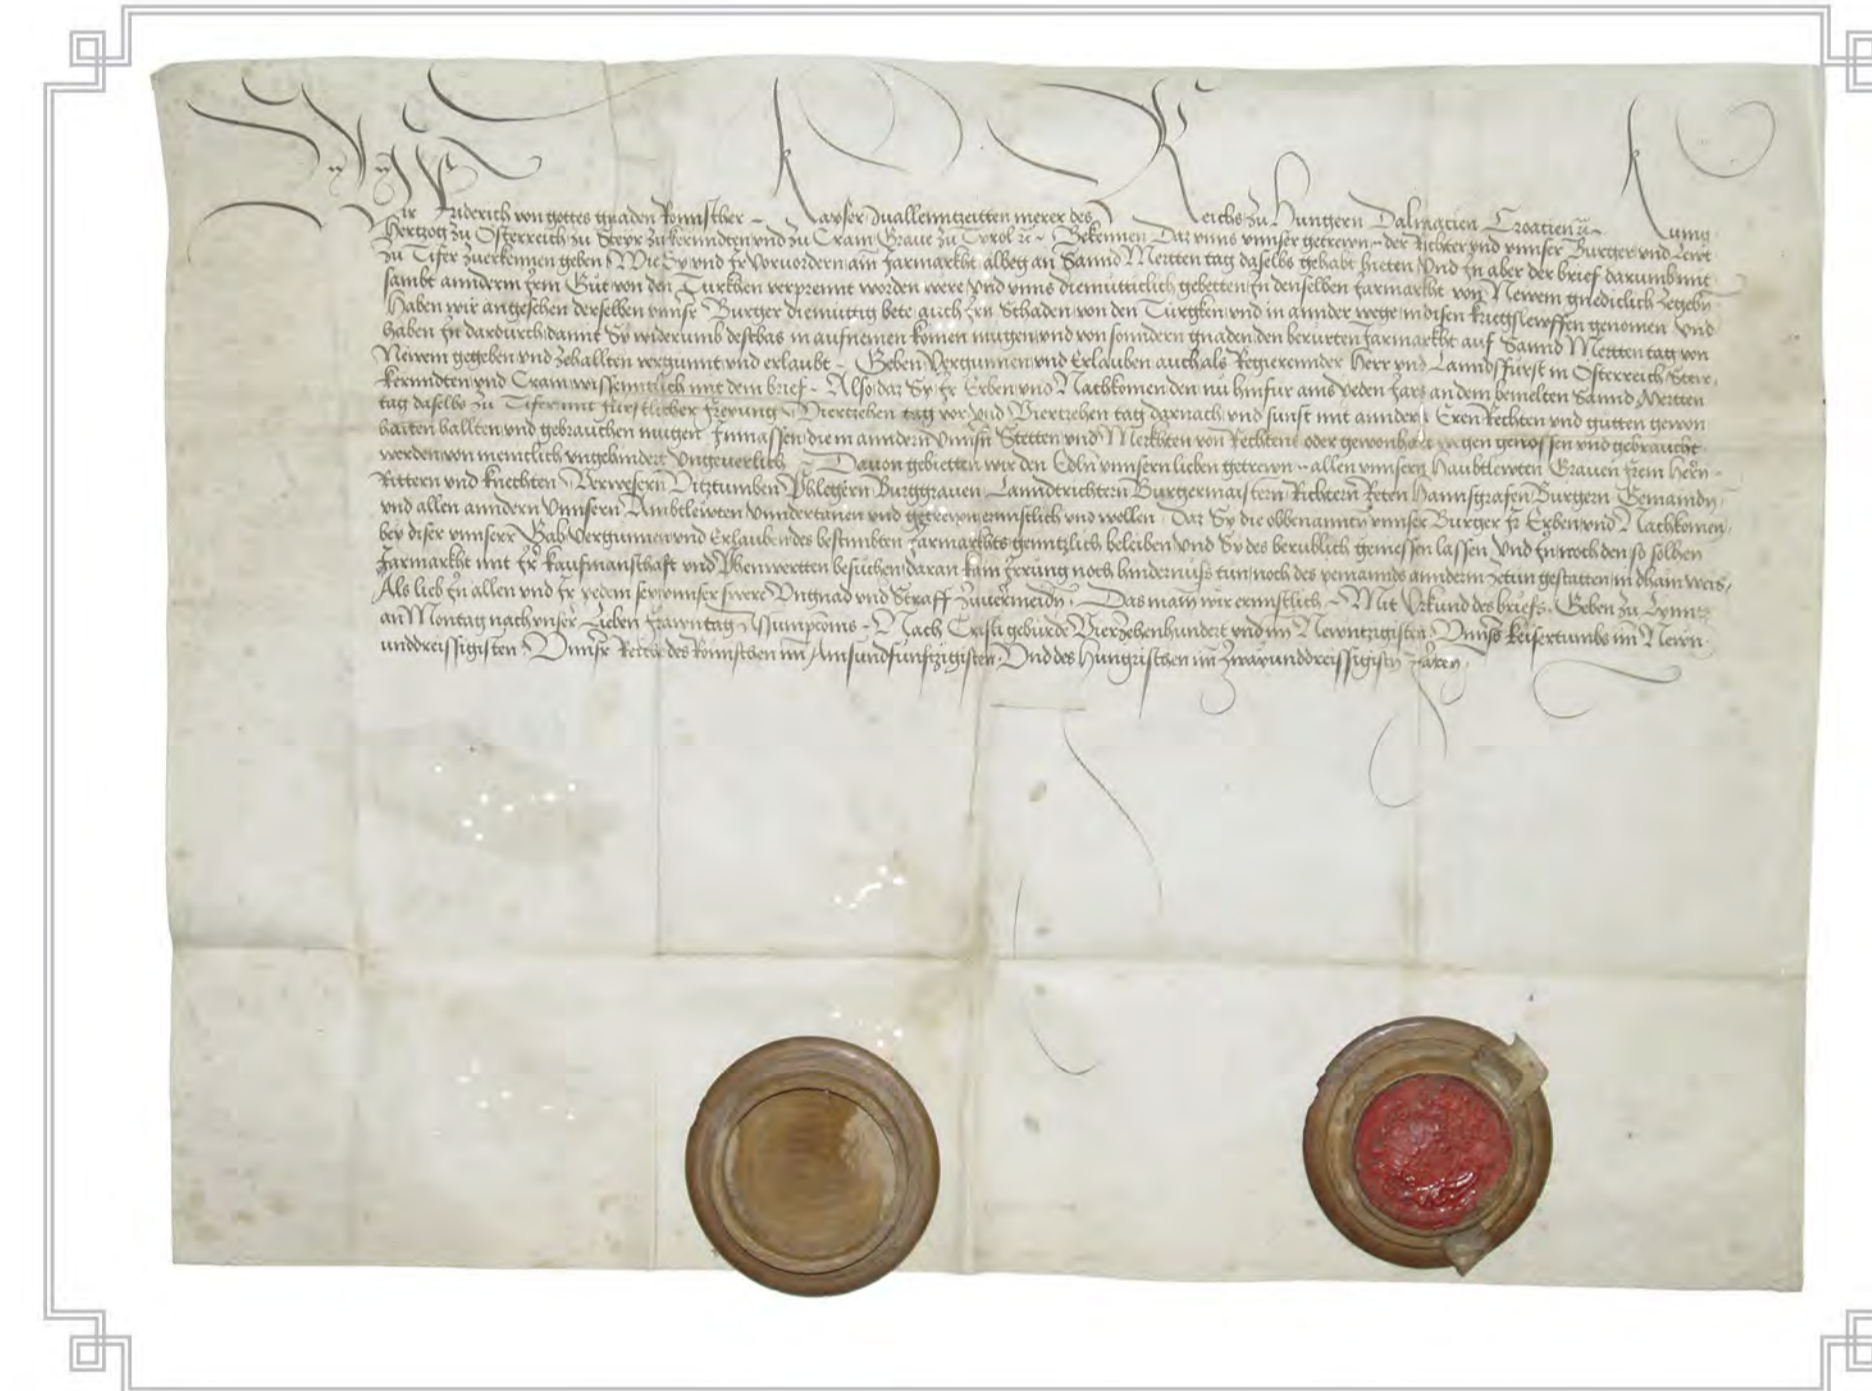 Wir Friderich von gottes gnaden Romischer Kayser zuallenntzeitten merer des Reichs zu Hungern Dalmacien Croacien rc Kunig
Hertzog zu Osterreich zu Steyr zu kernndten vnd zu Crain Graue zu Tyrol rc Bekennen Daz vnns vnnser getrewn der Richter vnd vnnser Burger vnd Lewt
zu Tifer zuerkennen geben Wie Sy vnd Ir Voruordern ain Jarmarkht albeg an Sannd Mertten tag daselbs gehabt hieten Vnd In aber der brief darumb mit
sambt annderm Irm Gut von den Turkhen verprennt worden were Vnd vnns diemutticlich gebetten In denselben Jarmarkht von Newem gnediclich zegebn
Haben wir angesehen derselben vnnser Burger diemuttig bete auch Irn Schaden von den Turgken vnd in annder wege in disen kriegslewffen genomen Vnd
haben In dardurch damit Sy widerumb destbas in aufnemen komen mugen vnd von sonndern gnaden den berurten Jarmarkht auf Sannd Mertten tag von
Newem gegeben vnd zehallten vergunnt vnd erlaubt Geben Vergunnen vnd Erlauben auch als Regierennder Herr vnd Lanndsfürst in Osterreich Steir
kernndten vnd Crain wissenntlich mit dem brief Also daz Sy Ir Erben vnd Nachkomen den nu hinfur ains yeden Jars an dem bemelten Sannd Mertten
tag daselbs zu Tifer mit fürstlicher freyung Viertzehen tag vor vnd Viertzehen tag darnach vnd sunst mit anndern Eren Rechten vnd gutten gewon
haiten hallten vnd gebrauchen mugen Inmassen die in anndern vnnsern Stetten vnd Merkhten von Rechtens oder gewonhait wegen genossen vnd gebraucht
werden von menniclich vngehindert Vngeuerlich Dauon gebietten wir den Edln vnnsern lieben getrewn allen vnnsern Haubtlewten Grauen freien Herrn
Rittern vnd knechten Verwesern Vitztumben Phlegern Burggrauen Lanndtrichtern Burgermaistern Richtern Reten Hannsgrafen Burgern Gemaindn
vnd allen anndern Vnnsern Ambtlewten Vnndertanen vnd getrewn ernnstlich vnd wellen Daz Sy die obbenanntn vnnser Burger Ir Erben vnd Nachkomen
bey diser vnnserr Gab Vergunnen vnd Erlauben des bestimbten Jarmarkhts genntzlich beleiben Vnd Sy des berublich geniessen lassen Vnd In noch den so solhen
Jarmarkht mit Ir kaufmanschaft vnd Phenwertten besuchen daran kain Irrung noch hindernuss tun noch des yemannds annderm zetun gestatten in dhain weis
Als lieb In allen vnd Ir yedem sey vnnser swere Vngnad vnd Straff zuuermeidn Das main wir ernnstlich Mit Vrkund des briefs Geben zu Lynntz
an Montag nach vnser Lieben frawn tag Assumpcionis Nach Cristi geburde Vierzehenhundert vnd im Newntzigisten Vnnsers keisertumbs im Newn
unddreissigisten Vnnserr Reiche des Romischen im Ainsundfunfzigisten Vnd des Hungrischen im Zwayunddreissigistn Jaren